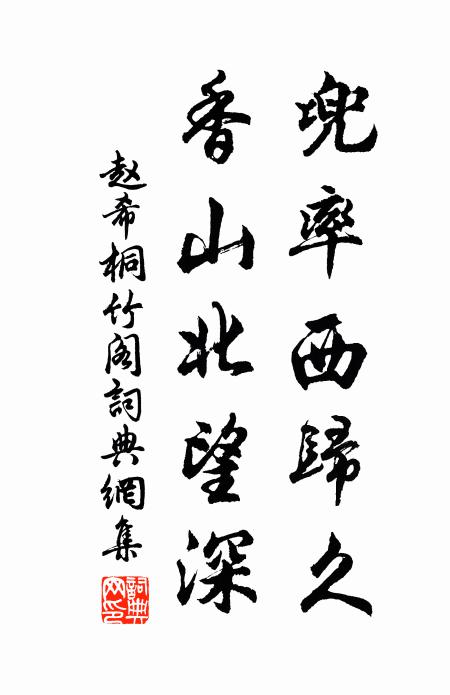 兜率西歸久
香山北望深
赵希桐竹阁詞典網集
詞典
网印